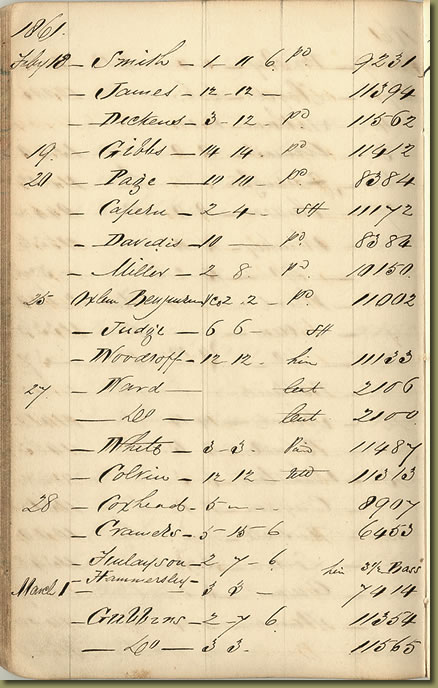 1861.
Feby 18 – Smith – 1 11 6 pd 9231
– James – 12 12 – 11394
– Dickens – 3 12 pd 11562
19. – Gibbs – 14 14. pd 11412
20 – Page – 10 10 – pd. 8384
– Capern – 2 4 – SH 11172
– Davidis – 10 – pd. 8384
– Miller – 2 8. pd. 10150
25 2 . 2 – pd. 11002
– Judge – 6 6 – SH
– Woodroff – 12 12 – hire 11133
27. – Ward – lent 2106
– Do – lent 2100
– White – 3 – 3 – Paid 11487
– Colvin – 12 12 – 11313
28 – Coxhead – 5 – 8907
– Cramers – 5 – 15 – 6 6453
– Finlayson – 2 – 7 – 6 hire Bass
March 1 – Hammersley – 3 3 – 7414
– Gubbins – 2 – 7 6 11354
– Do – 3 3. 11565